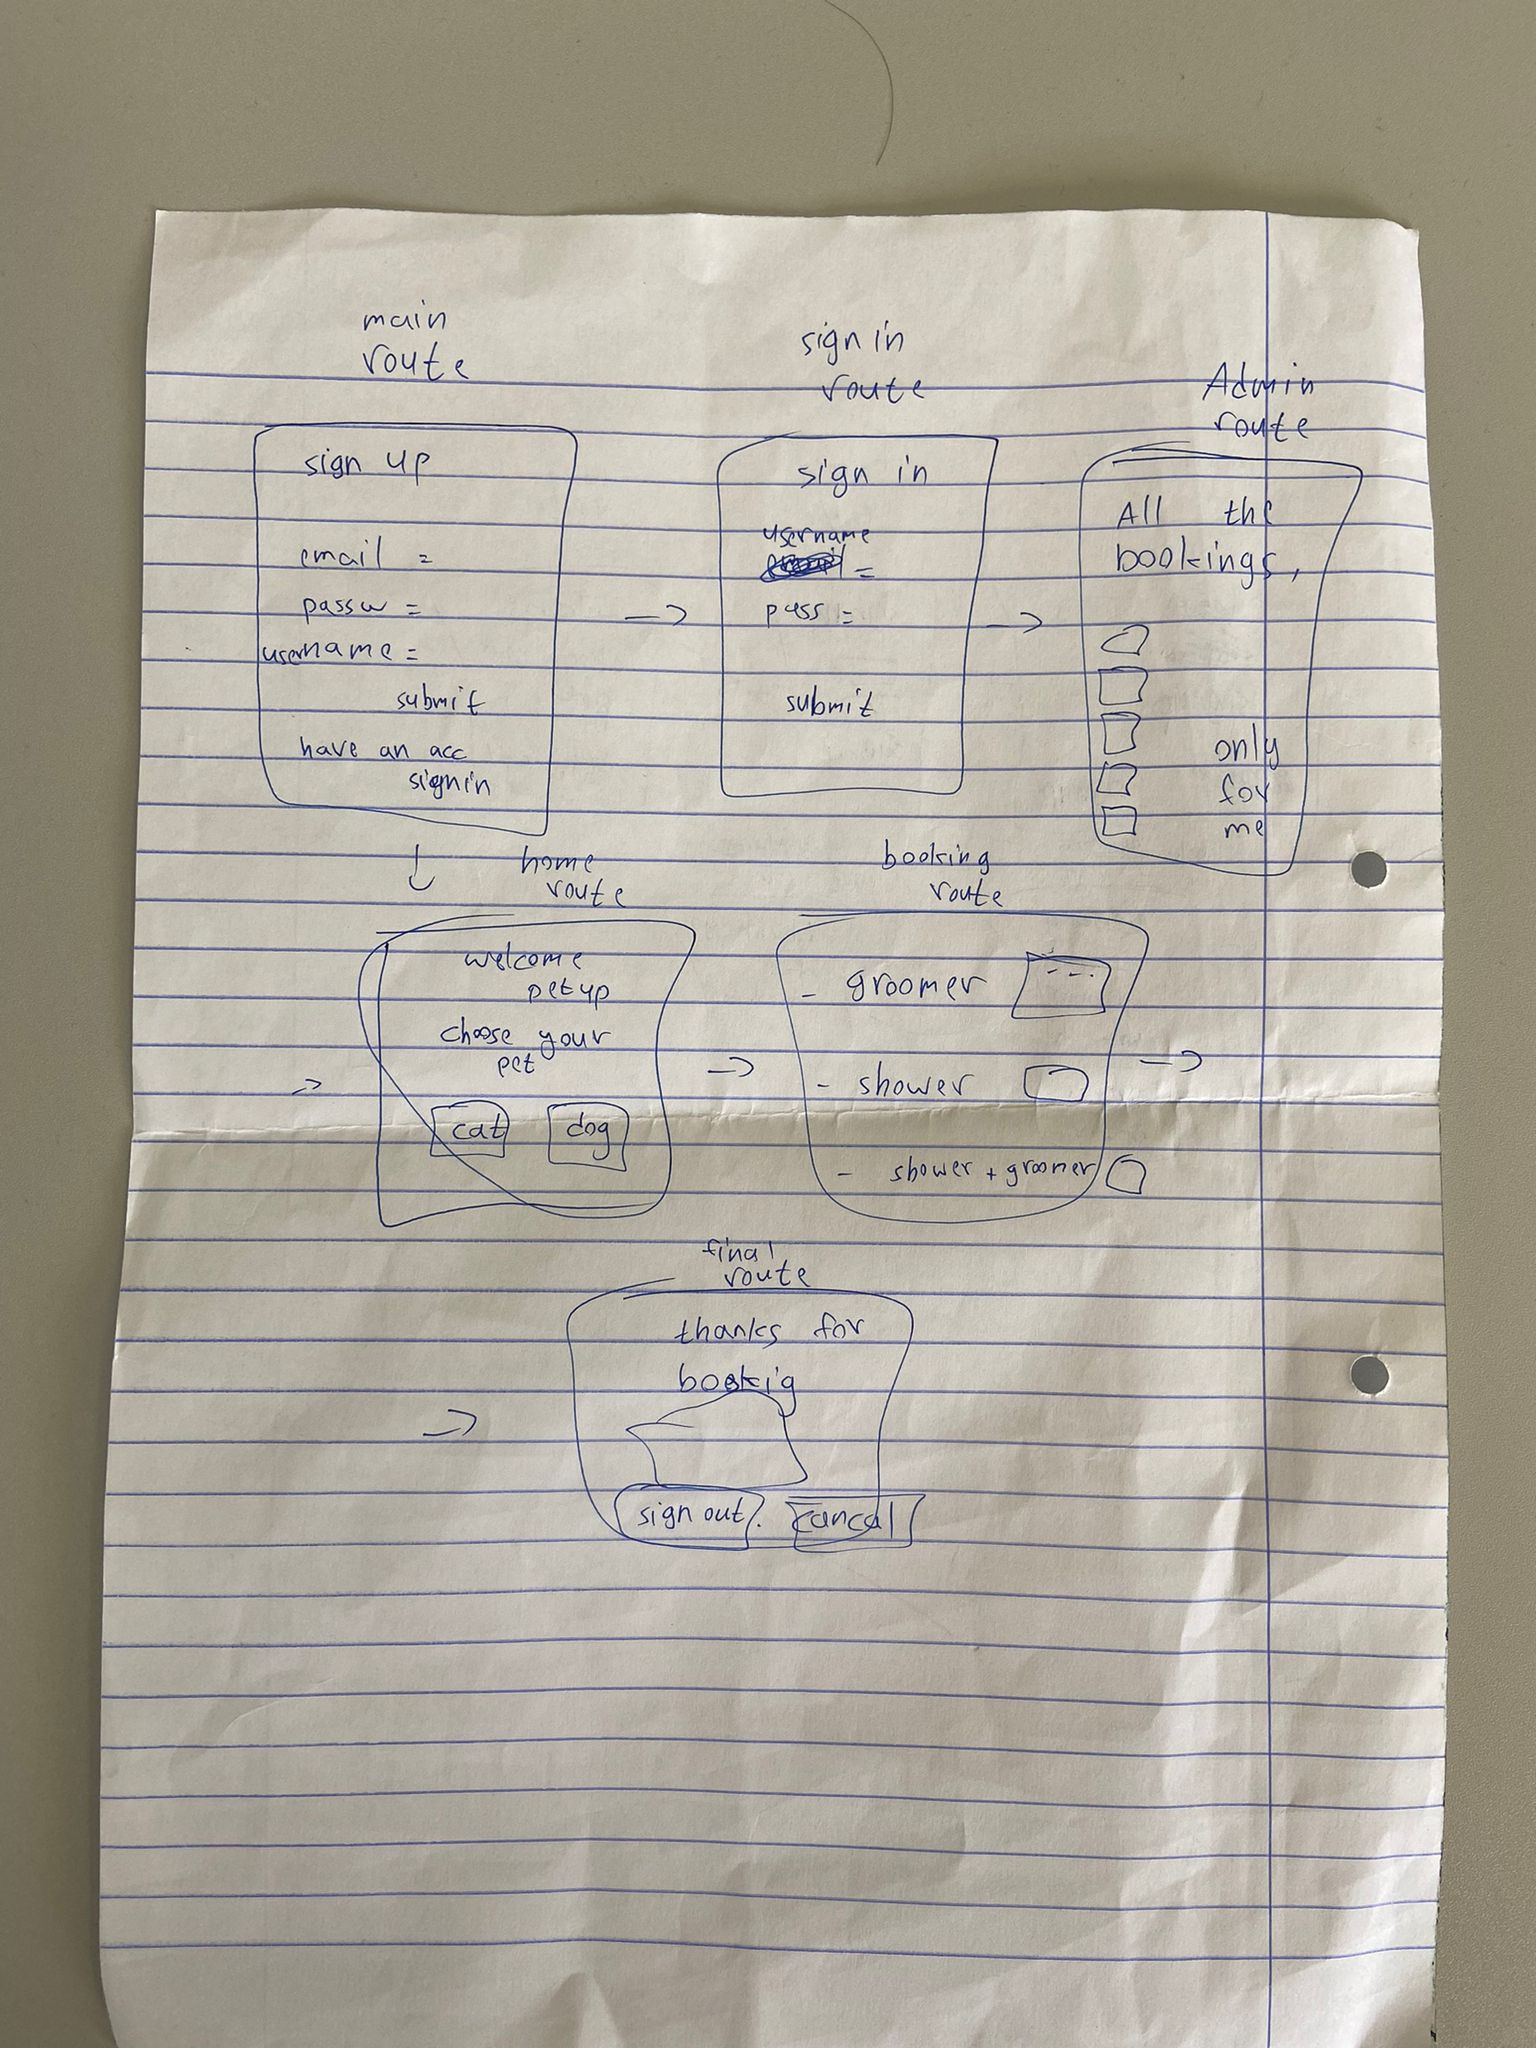 main
route
sign up
email =
passw =
username =
submit
have an acc
signin
sign in
route
sign in
username
=
pass =
submit
Admin
route
All the
bookings,
only
for
me
home
route
welcome
petup
choose your
pet
cat dog
booking
route
- groomer
- shower
- shower + groomer
final
route
thanks for
bookig
sign out. cancal